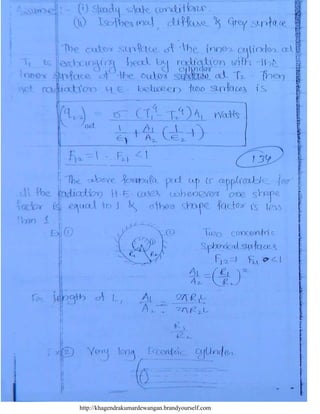 Assume :- (i) Steady state conditions.
(ii) Isothermal, diffuse & Grey surface
The outer surface of the inner cylinder at
T₁ is exchanging heat by radiation with the
inner surface of the outer cylinder at T₂. Then
net radiation H.E. between two surfaces is
(q₁₋₂)net = σ (T₁⁴ - T₂⁴) A₁ / (1/ε₁ + A₁/A₂ (1/ε₂ - 1)) Watts
F₁₂ = 1 · F₂₁ < 1
134
The above formula is applicable for
all the radiation H.E cases whenever one shape
factor is equal to 1 & other shape factor is less
than 1
Ex: (1) Two concentric
Spherical surfaces
R₁ R₂
F₁₂=1 F₂₁ <1
A₁/A₂ = (R₁/R₂)²
For length of L, A₁/A₂ = 2πR₁L/2πR₂L
= R₁/R₂
Ex (2) Very long Eccentric cylinder.
http://khagendrakumardewangan.brandyourself.com